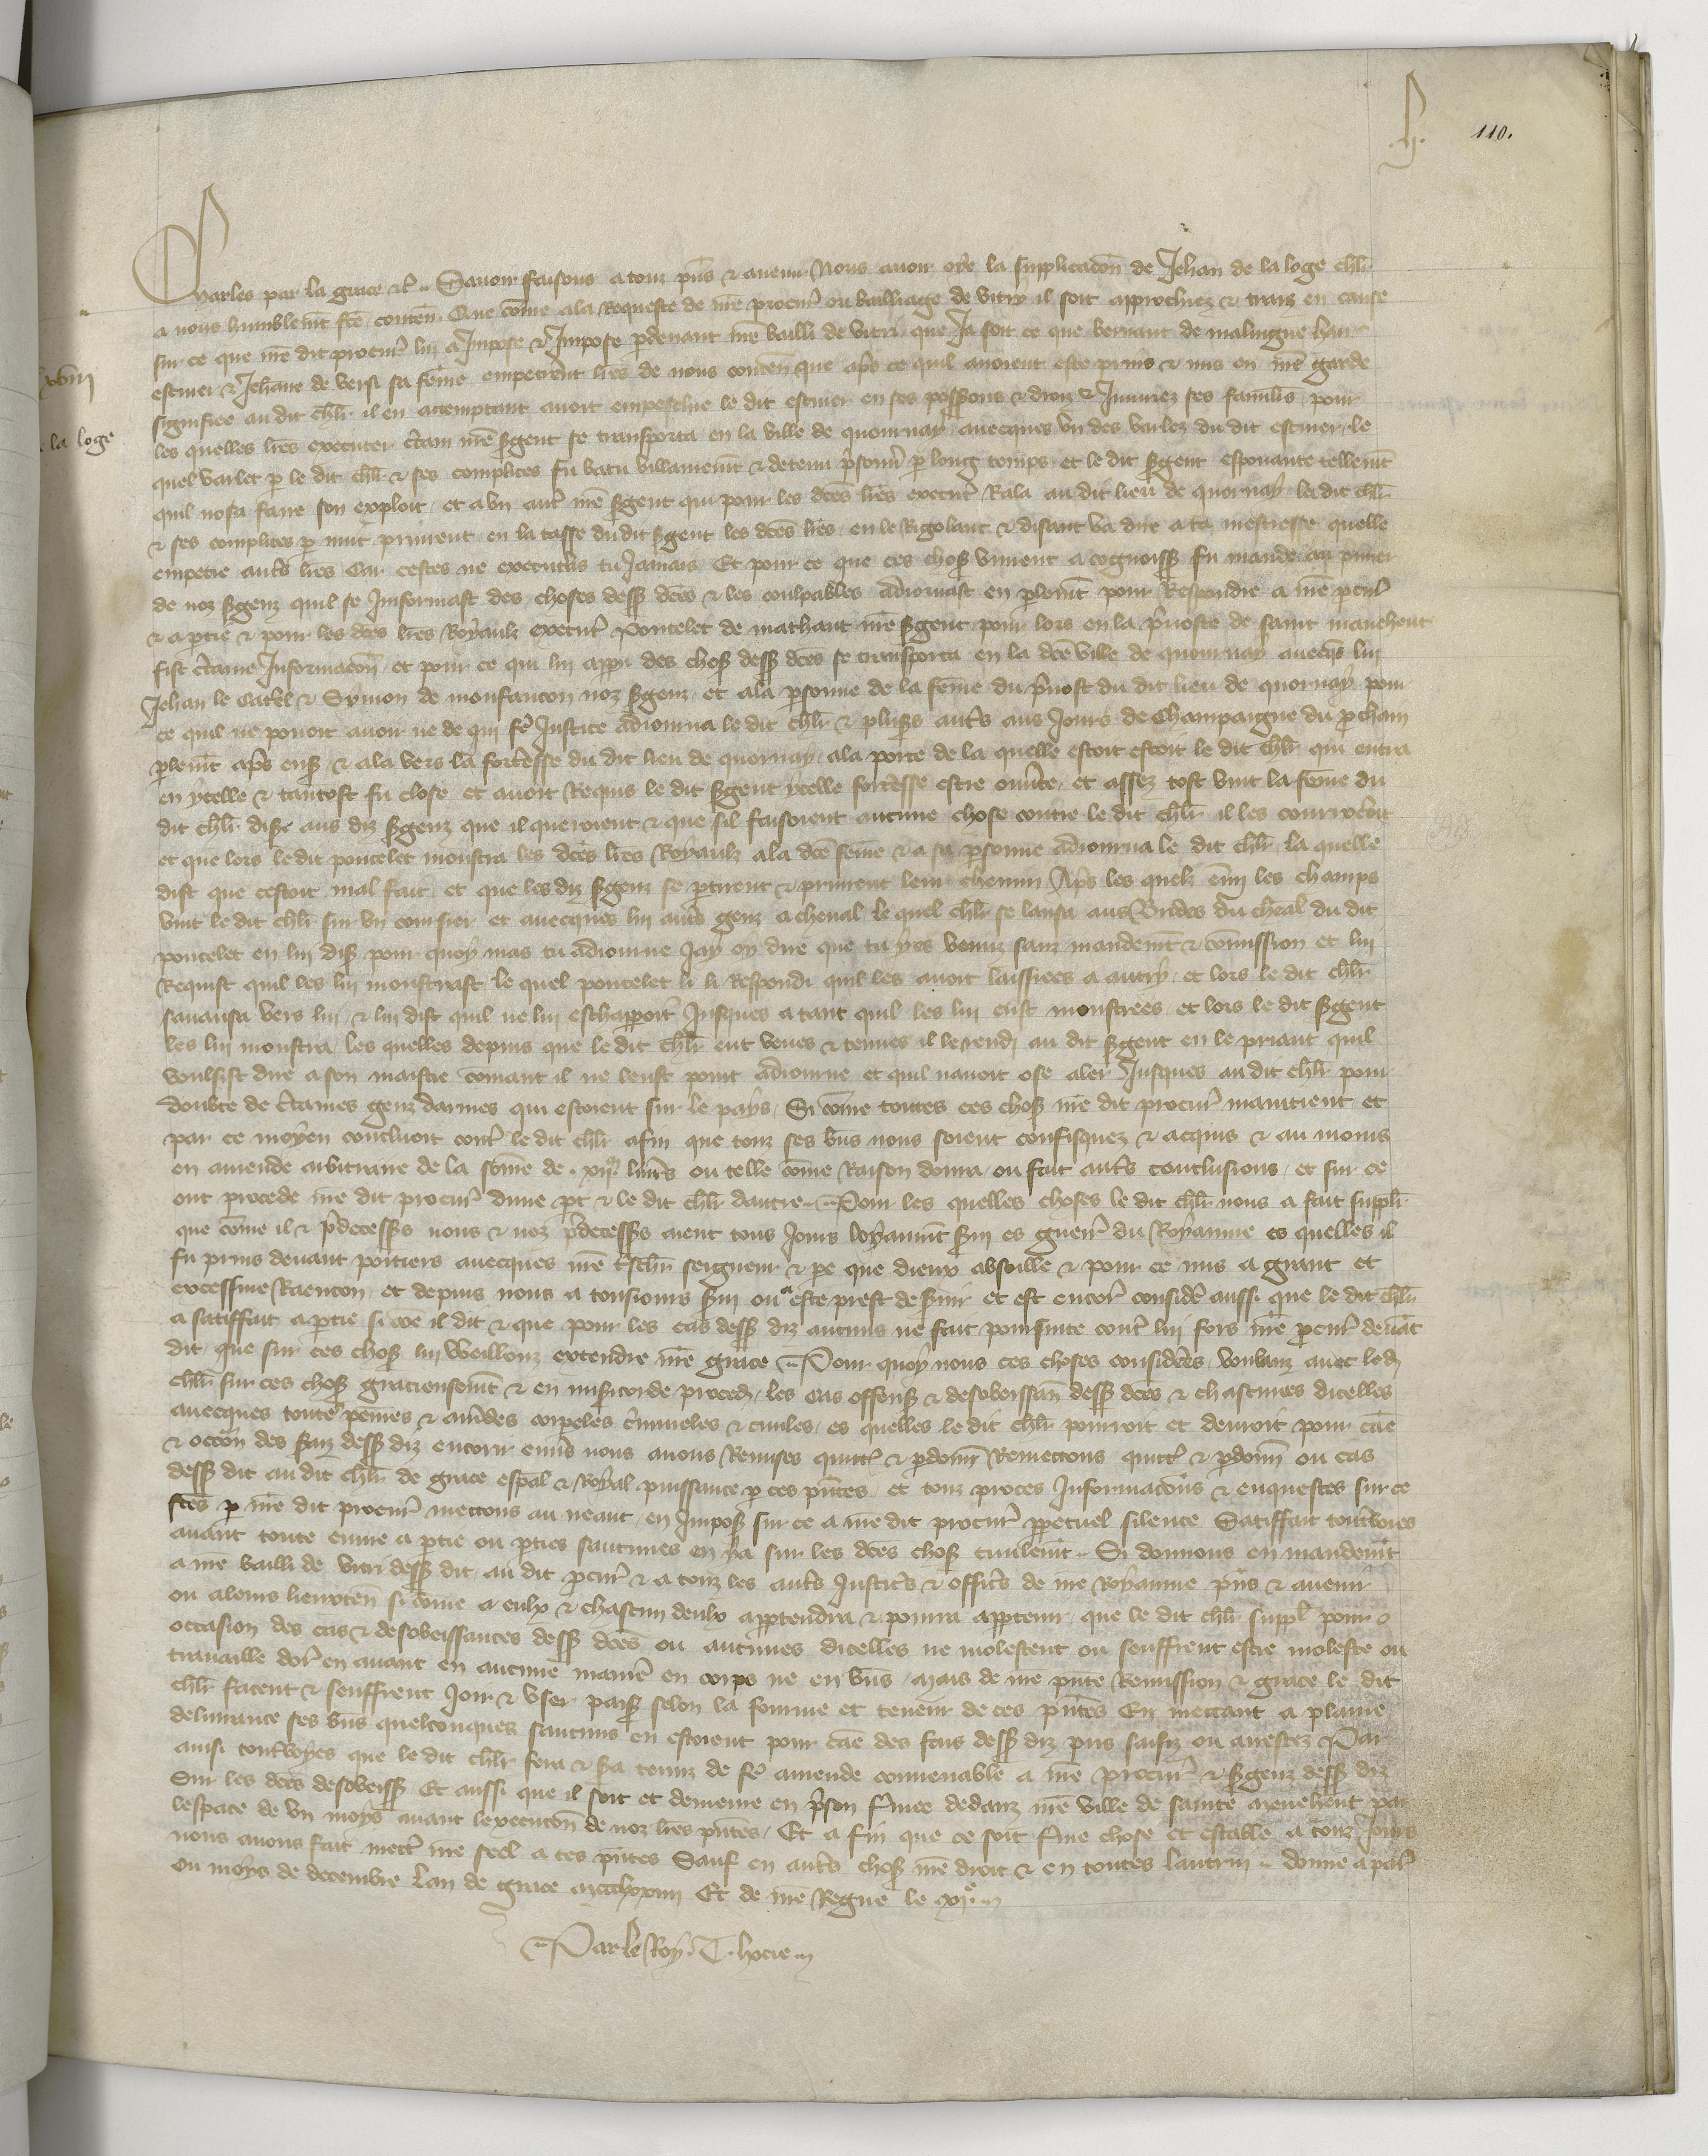 .h. 110.
Charles par la grace &c. Savoir faisons a touz pñs & avenir Nous avoir oye la supplicacõn de Jehan de la loge chlr
a nous humblemt fcẽ conten̄ Que cõme a la Requeste de nr̃e procur̃ ou bailliage de vitry il soit approchiez & traiz en cause
sur ce que nr̃e dit procur̃ lui a Impose & Impose pdevant nr̃e bailli de vitri que Ja soit ce que bernart de
escuier & Jehane de versi sa fẽme empetrer̃nt lr̃es de nous conten̄ que apr̃s ce quil avoient este prins & mis en nr̃e garde
signifiee au dit chlr̃ il en actemptant avoit empeschie le dit escuier en ses possõns & droiz & Injuriez ses famil̃s pour
les quelles lr̃es executer c̃tain nr̃e sgent se transporta en la ville de quournay avecques un des varlez du dit escuier le
quel varlet p le dit chlr̃ & ses complices fu batu villainemt & detenu p̃sonñ p long temps et le dit sgent espouante tellemt
quil nosa faire son exploit et a un aut̃ nr̃e sgent qui pour les dc̃es lr̃es execut̃ Rala au dit lieu de quornay le dit chlr̃
& ses complices p nuit prinrent en la tasse du dit sgent les dc̃es lr̃es en le Rigolant & disant va dire a ta mestresse quelle
empetre aut̃s lr̃es Car cestes ne executer̃s tu Jamais Et pour ce que ces chos vinrent a cognoiss fu mande au p̃mier
de noz sgenz quil se Informast des choses dess dc̃es & les coulpables adiournast en plemt pour Respondre a nr̃e pcur̃
& a ptie & pour les dc̃es lr̃es Royaulx execut̃ Poncelet de mathaut nr̃e sgent pour lors en la p̃voste de saint manehout
fist c̃taine Informacõn et pour ce qui lui appu des chos dess dc̃es se transporta en la dc̃e ville de quournay avecq̃s lui
Jehan le Catel & Symon de monfaucon noz sgenz et a la psonne de la fẽme du p̃vost du dit lieu de quornay pour
ce quil ne povoit avoir ne de qui fe Justice adiourna le dit chlr̃ & plus aut̃s aus Jours de Champaigne du pchain
plemt apr̃s ens & ala vers la forter̃sse du dit lieu de quornay a la porte de la quelle estoit estoit le dit chlr̃ qui entra
en ycelle & tantost fu close et avoit Requis le dit sgent ycelle forter̃sse estre ouṽte et assez tost vint la fẽme du
dit chlr̃ dis̃ aus diz sgenz que il queroient & que sil faisoient aucune chose contre le dit chlr̃ il les courroc̃oit
et que lors le dit poncelet monstra les dc̃es lr̃es Royaulx a la dc̃e fẽme & a sa psonne adiourna le dit chlr̃ la quelle
dist que cestoit mal fait et que les diz sgenz se ptirent & prinrent leur chemin Apr̃s les quelx em̃i les champs
vint le dit chlr̃ sur un coursier et avecques lui aut̃s genz a cheval le quel chlr̃ se lansa aus Brides du cheval du dit
poncelet en lui dis̃ pour quoy mas tu adiourne Jay oy dire que tu yes venuz sanz mandemt & com̃ission et lui
Requist quil les lui monstrast le quel poncelet li li Respondi quil les avoit laissiees a autry et lors le dit chlr̃
savansa vers lui & lui dist quil ne lui eschapperoit Jusques a tant quil les lui eust monstrees et lors le dit sgent
les lui monstra les quelles depuis que le dit chlr̃ eut veues & tenues il le rendi au dit sgent en le priant quil
voulsist dire a son maistre coment il ne leust point adiourne et quil navoit ose aler Jusques au dit chlr̃ pour
doubte de c̃taines genz darmes qui estoient sur le pays Si cõme toutes ces chos nr̃e dit procur̃ maintient et
par ce moyen concluoit cont̃ le dit chlr̃ afin que touz ses bñs nous soient confisquez & acquis & au moins
en amende arbitraire de la sõme de livr̃s ou telle cõme Raison donra ou fait aut̃s conclusions et sur ce
ont procede nr̃e dit procur̃ dune pt & le dit chlr̃ dautre Pour les quelles choses le dit chlr̃ nous a fait suppl̃
que cõme il & p̃decess̃s nous & noz p̃decess̃s aient tous Jours loyaumt s̃vi es guerr̃ du Royaume es quelles il
fu prins devant poitiers avecques nr̃e t̃schr̃ seigneur & pe que dieux absoille & pour ce mis a grant et
excessive Raencon et depuis nous a tousiours s̃vi ou a este prest de s̃vir et est encor̃ consider̃ aussi que le dit chlr̃
a satiffait a ptie si cõe il dit & que pour les cas dess diz aucuns ne fait poursuite cont̃ lui fors nr̃e pcur̃ devãt
dit que sur ces chos lui Weillonz extendre nr̃e grace Pour quoy nous ces choses consider̃es voulanz avec led
chlr̃ sur ces chos gracieusemt & en misericorde proced̃ les cas offens & desobeissan̄ dess dc̃es & chascunes dicelles
avecques toute peines & am̃des corpeles c̃iminelles & civiles es quelles le dit chlr̃ pourroit et devroit pour cãe
& occõn des faiz dess diz encorir envers nous avons Remises quict̃ & pdonn̄ Remectons quict̃ & pdonn̄ ou cas
dess dit au dit chlr̃ de grace esp̃al & Royal puissance p ces pñtes et touz proces Informacõns & enquestes sur ce
fc̃es p nr̃e dit procur̃ mectons au neant en Impos̃ sur ce a nr̃e dit procur̃ ppetuel silence Satiffait toutvoies
avant toute euvre a ptie ou pties saucunes en ya sur les dc̃es chos civilemt Si donnons en mandemt
a nr̃e bailli de vitri dess dit au dit pcur̃ & a touz les aut̃s Justic̃s & offic̃s de nr̃e Royaume pñs & avenir
ou a leurs lieuxten̄ si cõme a eulx & chascun deulx apptendra & pourra apptenir que le dit chlr̃ suppl̃ pour
occasion des cas & desobeissances dess dc̃es ou aucunes dicelles ne molestent ou seuffrent estre moleste ou
travaille dor̃ en avant en aucune manier̃ en corps ne en bñs mais de nr̃e pñte Remission & grace le dit
chlr̃ facent & seuffrent Joir & user pais̃ selon la fourme et teneur de ces pñtes En mectant a plaine
delivrance ses bñs quelconques saucuns en estoient pour cãe des fais dess diz prins saisiz ou arrestez Par
ainsi toutvoyes que le dit chlr̃ fera & s̃a tenuz de fe amende convenable a nr̃e procur̃ & sgenz dess diz
Sur les dc̃es desobeiss Et aussi que il soit et demeure en p̃son f̃mee dedanz nr̃e ville de sainte Menehout par
lespace de un moys avant lexecucõn de noz lr̃es pñtes Et a fin que ce soit f̃me chose et estable a touz Jours
nous avons fait mectr̃ nr̃e seel a ces pñtes Sauf en aut̃s chos nr̃e droit & en toutes lautrui donne a par̃
ou moys de decembre lan de grace mccclxxiiii Et de nr̃e Regne le xie
Par le Roy T. hocie
xviii
e la loge